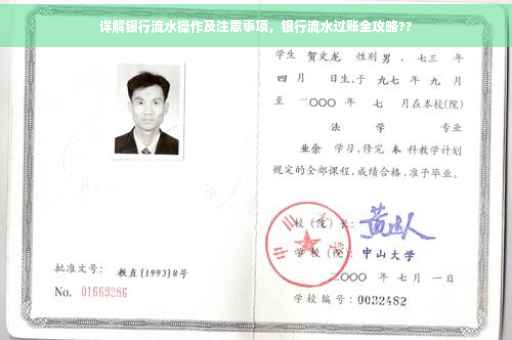 详解银行流水操作及注意事项，银行流水过账全攻略??
学生 贺文龙 性别 男，七三 年
四 月 日生,于 九七 年 九 月
至 二〇〇〇 年 七 月在本校(院)
法 学 专业
业余 学习,修完 本 科教学计划
规定的全部课程,成绩合格,准予毕业。
校 (院) 长:
学 校 (院): 中山大学
二〇〇〇 年 七 月 一 日
批准文号: 教直[1993]8号
No. 01669286
学校编号: 0032482